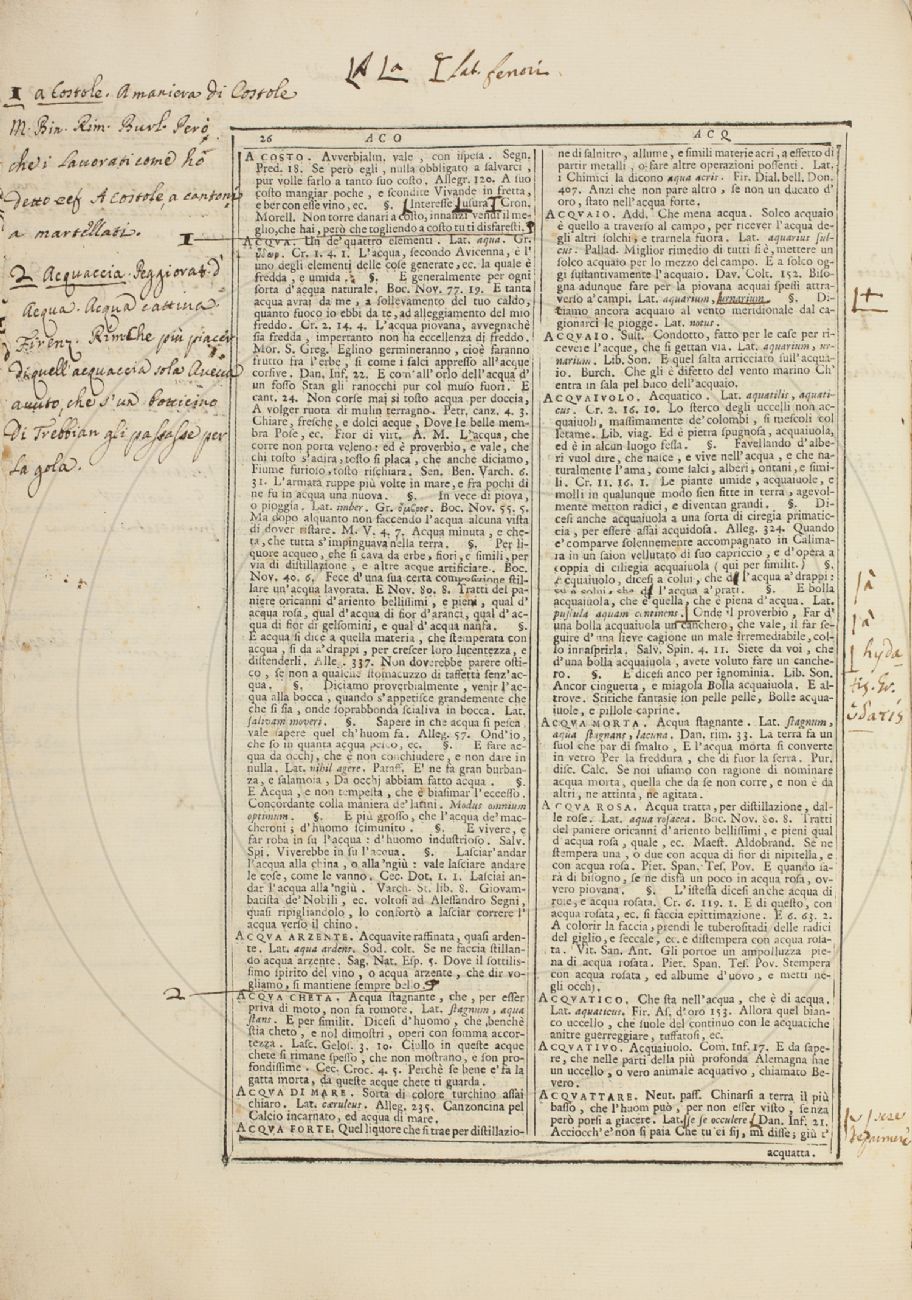 1 a Costole. A maniera di Costole
M. Bin. Rim. Burl. Però
che i lavorati come hò
detto A Costole, a cantoni
a martellati.
1
2 Acquaccia. Peggiorat. d'
Acqua. Acqua cattiva
Firenz. Rim. Che più piacer
di quell'acquaccia sola
avuto, che s'un botticino
Di Trebbian gli passasse per
La gola.
2
26 ACO
A COSTO. Avverbialm. vale, con ispesa. Segn.
Pred. 18. Se però egli, nulla obbligato a salvarci,
pur volle farlo a tanto suo costo. Allegr. 120. A suo
costo mangiar poche, e scondite Vivande in fretta,
e ber con esse vino, ec. §. Interesse, usura. Cron.
Morell. Non torre danari a costo, innanzi vendi il me-
glio, che hai, però che togliendo a costo tu ti disfaresti.
ACQVA. Un de' quattro elementi. Lat. aqua. Gr.
ὕδωρ. Cr. 1. 4. 1. L'acqua, secondo Avicenna, è l'
uno degli elementi delle cose generate, ec. la quale è
fredda, e umida. §. E generalmente per ogni
sorta d'acqua naturale. Boc. Nov. 77. 19. E tanta
acqua avrai da me, a sollevamento del tuo caldo,
quanto fuoco io ebbi da te, ad alleggiamento del mio
freddo. Cr. 2. 14. 4. L'acqua piovana, avvegnachè
sia fredda, impertanto non ha eccellenza di freddo.
Mor. S. Greg. Eglino germineranno, cioè faranno
frutto fra l'erbe, sì come i salci appresso all'acque
corsive. Dan. Inf. 22. E com'all'orlo dell'acqua d'
un fosso Stan gli ranocchi pur col muso fuori. E
cant. 24. Non corse mai sì tosto acqua per doccia,
A volger ruota di mulin terragno. Petr. canz. 4. 3.
Chiare, fresche, e dolci acque, Dove le belle mem-
bra Pose, ec. Fior di virt. A. M. L'acqua, che
corre non porta veleno: ed è proverbio, e vale, che
chi tosto s'adira, tosto si placa, che anche diciamo,
Fiume furioso, tosto rischiara. Sen. Ben. Varch. 6.
31. L'armata ruppe più volte in mare, e fra pochi dì
ne fu in acqua una nuova. §. In vece di piova,
o pioggia. Lat. imber. Gr. ὄμβρος. Boc. Nov. 55. 5.
Ma dopo alquanto non faccendo l'acqua alcuna vista
di dover ristare. M. V. 4. 7. Acqua minuta, e che-
ta, che tutta s'impinguava nella terra. §. Per li-
quore acqueo, che si cava da erbe, fiori, e simili, per
via di distillazione, e altre acque artificiate. Boc.
Nov. 40. 6. Fece d'una sua certa composizione stil-
lare un'acqua lavorata. E Nov. 80. 8. Tratti del pa-
niere oricanni d'ariento bellissimi, e pieni, qual d'
acqua rosa, qual d'acqua di fior d'aranci, qual d'ac-
qua di fior di gelsomini, e qual d'acqua nanfa. §.
E acqua si dice a quella materia, che stemperata con
acqua, si dà a' drappi, per crescer loro lucentezza, e
distenderli. Alle. 337. Non doverebbe parere osti-
co, se non a qualche stomacuzzo di taffettà senz'ac-
qua. §. Diciamo proverbialmente, venir l'ac-
qua alla bocca, quando s'appetisce grandemente che
che si sia, onde soprabbonda scialiva in bocca. Lat.
salivam moveri. §. Sapere in che acqua si pesca
vale sapere quel ch'huom fa. Alleg. 57. Ond'io,
che so in quanta acqua pesco, ec. §. E fare ac-
qua da occhj, che è non conchiudere, e non dare in
nulla. Lat. nihil agere. Pataff. E' ne fa gran burban-
za, e salamoia, Da occhi abbiam fatto acqua. §.
E Acqua, e non tempesta, che è biasimar l'eccesso.
Concordante colla maniera de' latini. Modus omnium
optimum. §. E più grosso, che l'acqua de' mac-
cheroni; d'huomo scimunito. §. E vivere, e
far roba in su l'acqua: d'huomo industrioso. Salv.
Spi. Viverebbe in su l'acqua. §. Lasciar'andar
l'acqua alla china, o alla 'ngiù: vale lasciare andare
le cose, come le vanno. Cec. Dot. 1. 1. Lasciai an-
dar l'acqua alla 'ngiù. Varch. St. lib. 8. Giovam-
batista de' Nobili, ec. voltosi ad Alessandro Segni,
quasi ripigliandolo, lo confortò a lasciar correre l'
acqua verso il chino.
ACQVA ARZENTE. Acquavite raffinata, quasi arden-
te. Lat. aqua ardens. Sod. colt. Se ne faccia stillan-
do acqua arzente. Sag. Nat. Esp. 5. Dove il sottilis-
simo spirito del vino, o acqua arzente, che dir vo-
gliamo, si mantiene sempre bello.
ACQVA CHETA. Acqua stagnante, che, per esser
priva di moto, non fa romore. Lat. stagnum, aqua
stans. E per similit. Dicesi d'huomo, che, benchè
stia cheto, e nol dimostri, operi con somma accor-
tezza. Lasc. Gelos. 3. 10. Ciullo in queste acque
chete si rimane spesso, che non mostrano, e son pro-
fondissime. Cec. Croc. 4. 5. Perchè se bene e' fa la
gatta morta, da queste acque chete ti guarda.
ACQVA DI MARE. Sorta di colore turchino assai
chiaro. Lat. cæruleus. Alleg. 235. Canzoncina pel
Calcio incarnato, ed acqua di mare.
ACQVA FORTE. Quel liquore che si trae per distillazio-
ACQ
ne di salnitro, allume, e simili materie acri, a effetto di
partir metalli, o fare altre operazioni possenti. Lat.
i Chimici la dicono aqua acris. Fir. Dial. bell. Don.
407. Anzi che non pare altro, se non un ducato d'
oro, stato nell'acqua forte.
ACQVAIO. Add. Che mena acqua. Solco acquaio
è quello a traverso al campo, per ricever l'acqua de-
gli altri solchi, e trarnela fuora. Lat. aquarius sul-
cus. Pallad. Miglior rimedio di tutti si è, mettere un
solco acquaio per lo mezzo del campo. E a solco og-
gi sustantivamente l'acquaio. Dav. Colt. 152. Biso-
gna adunque fare per la piovana acquai spessi attra-
verso a' campi. Lat. aquarium, urnarium. §. Di-
ciamo ancora acquaio al vento meridionale dal ca-
gionarci le piogge. Lat. notus.
ACQVAIO. Sust. Condotto, fatto per le case per ri-
cevere l'acque, che si gettan via. Lat. aquarium, ur-
narium. Lib. Son. E quel salta arricciato sull'acqua-
io. Burch. Che gli è difetto del vento marino Ch'
entra in sala pel buco dell'acquaio.
ACQVAIVOLO. Acquatico. Lat. aquatilis, aquati-
cus. Cr. 2. 16. 10. Lo sterco degli uccelli non ac-
quaiuoli, massimamente de' colombi, si mescoli col
letame. Lib. viag. Ed è pietra spugnosa, acquaiuola,
ed è in alcun luogo fessa. §. Favellando d'albe-
ri vuol dire, che nasce, e vive nell'acqua, e che na-
turalmente l'ama, come salci, alberi, ontani, e simi-
li. Cr. 11. 16. 1. Le piante umide, acquaiuole, e
molli in qualunque modo sien fitte in terra, agevol-
mente metton radici, e diventan grandi. §. Di-
cesi anche acquaiuola a una sorta di ciregia primatic-
cia, per essere assai acquidosa. Alleg. 324. Quando
e' comparve solennemente accompagnato in Calima-
ra in un saion vellutato di suo capriccio, e d'opera a
coppia di ciliegia acquaiuola (qui per similit.) §.
E cquaiuolo, dicesi a colui, che dà l'acqua a' drappi:
ed a colui, che dà l'acqua a' prati. §. E bolla
acquaiuola, che è quella, che è piena d'acqua. Lat.
pustula aquam continens. Onde 'l proverbio, Far d'
una bolla acquaiuola un canchero, che vale, il far se-
guire d'una lieve cagione un male irremediabile, col-
lo innasprirla. Salv. Spin. 4. 11. Siete da voi, che
d'una bolla acquaiuola, avete voluto fare un canche-
ro. §. E dicesi anco per ignominia. Lib. Son.
Ancor cinguetta, e miagola Bolla acquaiuola. E al-
trove. Stitiche fantasie son pelle pelle, Bolle acqua-
iuole, e pillole caprine.
ACQVA MORTA. Acqua stagnante. Lat. stagnum,
aqua stagnans, lacuna. Dan. rim. 33. La terra fa un
suol che par di smalto, E l'acqua morta si converte
in vetro Per la freddura, che di fuor la serra. Pur.
disc. Calc. Se noi usiamo con ragione di nominare
acqua morta, quella che da se non corre, e non è da
altri, ne attinta, ne agitata.
ACQVA ROSA. Acqua tratta, per distillazione, dal-
le rose. Lat. aqua rosacea. Boc. Nov. 80. 8. Tratti
del paniere oricanni d'ariento bellissimi, e pieni qual
d'acqua rosa, quale, ec. Maest. Aldobrand. Se ne
stempera una, o due con acqua di fior di nipitella, e
con acqua rosa. Piet. Span. Tes. Pov. E quando sa-
rà di bisogno, se ne disfà un poco in acqua rosa, ov-
vero piovana. §. L'istessa dicesi anche acqua di
rose, e acqua rosata. Cr. 6. 119. 1. E di questo, con
acqua rosata, ec. si faccia epittimazione. E 6. 63. 2.
A colorir la faccia, prendi le tuberositadi delle radici
del giglio, e seccale, ec. e distempera con acqua rosa-
ta. Vit. San. Ant. Gli portoe un ampolluzza pie-
na di acqua rosata. Piet. Span. Tes. Pov. Stempera
con acqua rosata, ed albume d'uovo, e metti ne-
gli occhj.
ACQVATICO. Che sta nell'acqua, che è di acqua.
Lat. aquaticus. Fir. As. d'oro 153. Allora quel bian-
co uccello, che suole del continuo con le acquatiche
anitre guerreggiare, tuffatosi, ec.
ACQVATIVO. Acquaiuolo. Com. Inf. 17. E da sape-
re, che nelle parti della più profonda Alemagna nae
un uccello, o vero animale acquativo, chiamato Be-
vero.
ACQVATTARE. Neut. pass. Chinarsi a terra il più
basso, che l'huom può, per non esser visto, senza
però porsi a giacere. Lat. se se occulere. Dan. Inf. 21.
Acciocch'e' non si paia Che tu ci sij, mi disse; giù t'
acquatta.